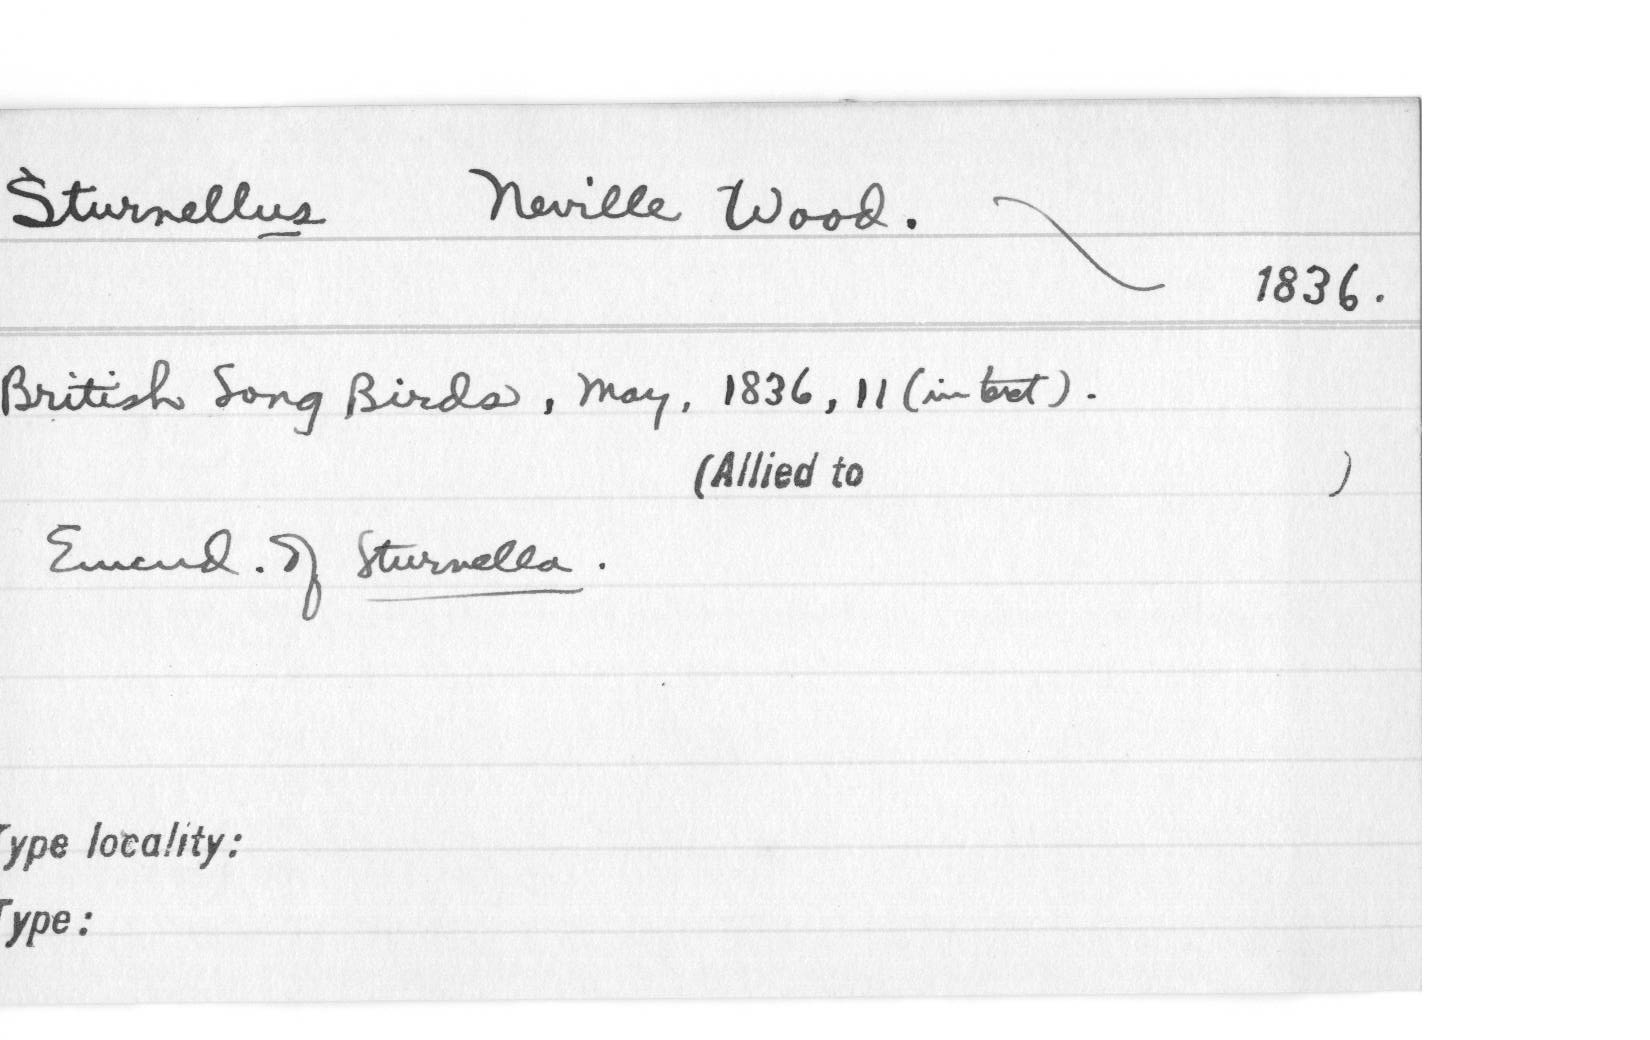 Sturnellus Neville Wood.
1836.
British Song Birds, May, 1836, 11 (in text).
(Allied to )
Emend. of Sturnella.
Type locality:
Type: